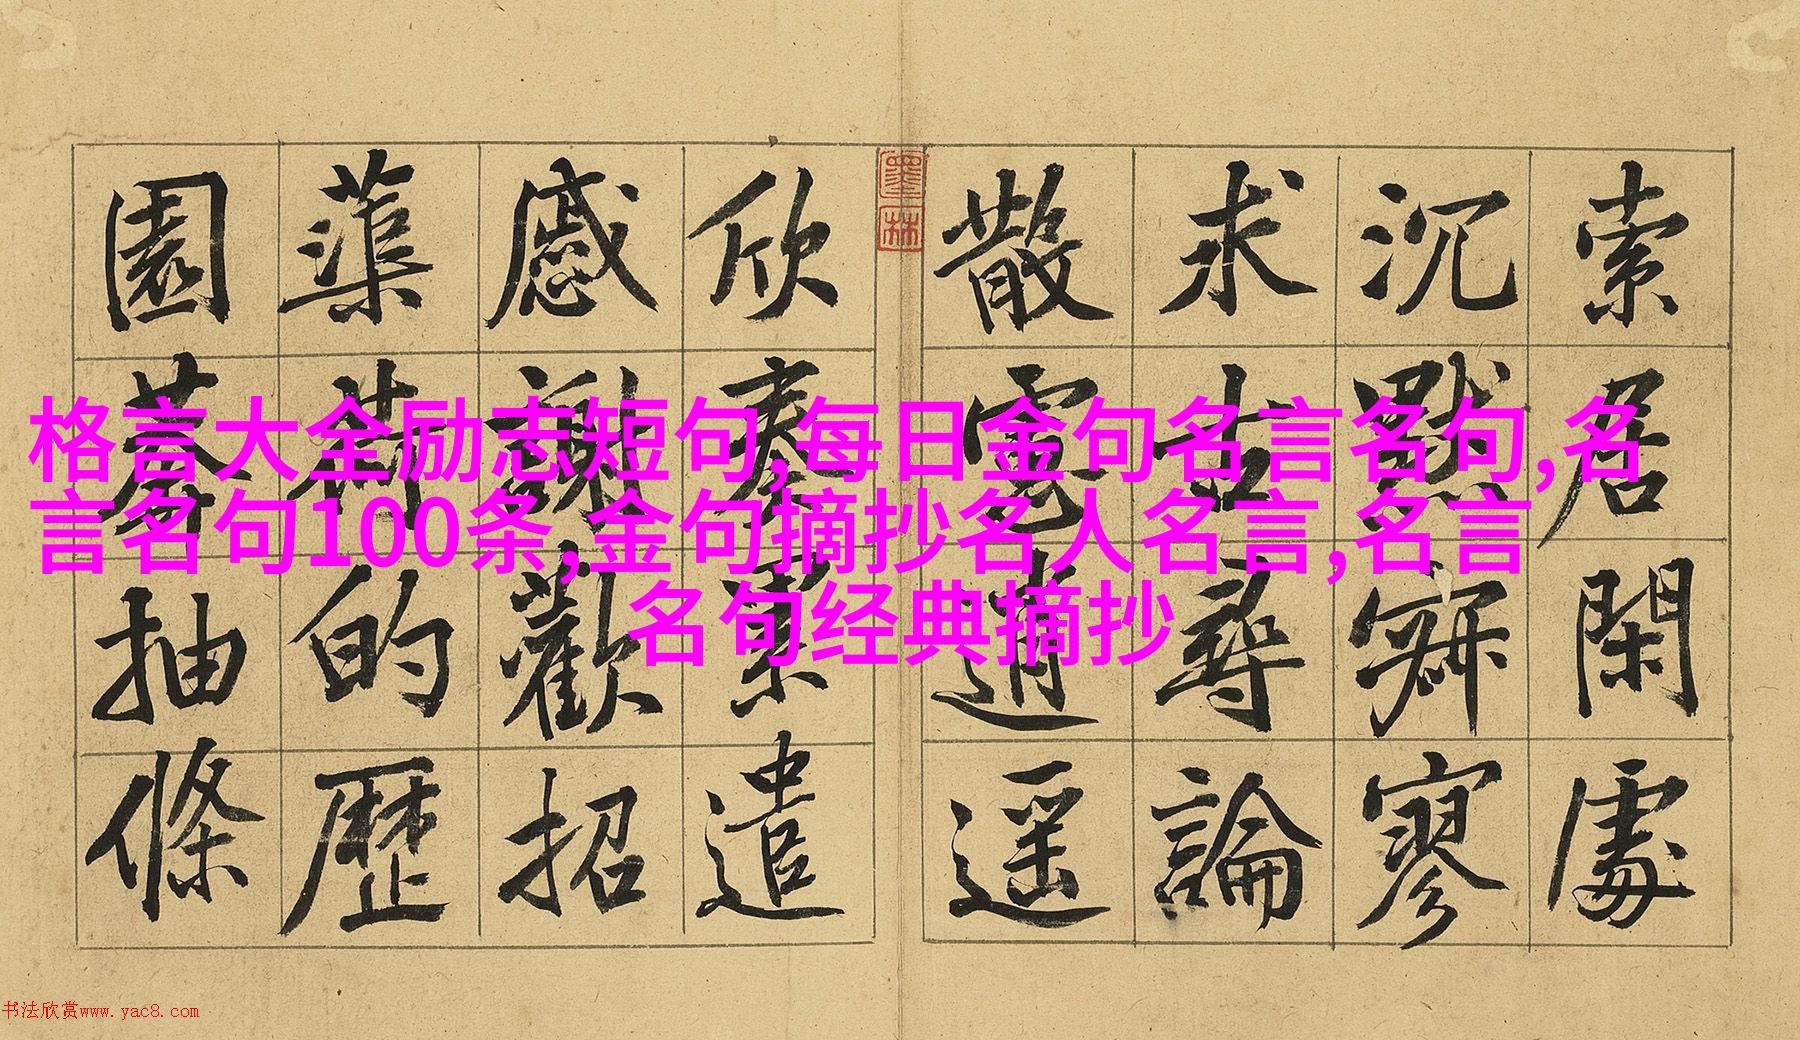 格言大全励志短句,每日金句名言名句,名
言名句100条,金句摘抄名人名言,名言
名句经典摘抄
索居閑處
沉默寂寥
求古尋論
散慮逍遥
墨林
欣奏累遣
慼謝歡招
蕖荷的歷
園莽抽條
书法欣赏www.yac8.com